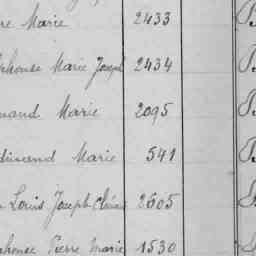 re Marie 2433
phonse Marie Joseph 2434
nand Marie 2095
dinand Marie 541
Louis Joseph 2605
phonse Pierre Marie 1530